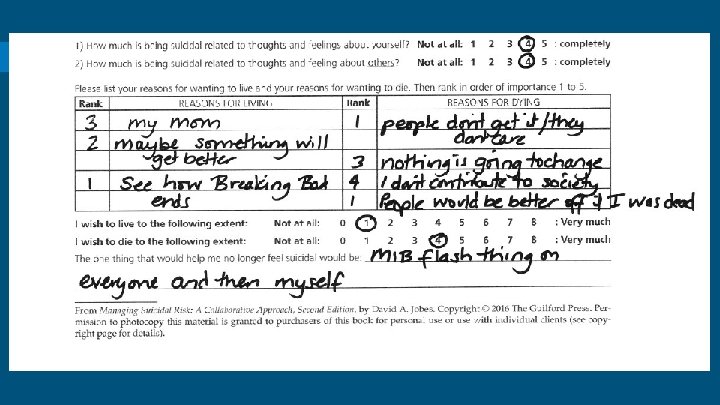 1) How much is being suicidal related to thoughts and feelings about yourself? Not at all: 1 2 3 4 5 : completely
2) How much is being suicidal related to thoughts and feeling about others? Not at all: 1 2 3 4 5 : completely
Please list your reasons for wanting to live and your reasons for wanting to die. Then rank in order of importance 1 to 5.
Rank REASONS FOR LIVING Rank REASONS FOR DYING
3 my mom 1 people don't get it/they
don't care
2 maybe something will
get better
3 nothing is going to change
1 See how Breaking Bad 4 I don't contribute to society
ends 1 People would be better off if I was dead
I wish to live to the following extent: Not at all: 0 1 2 3 4 5 6 7 8 : Very much
I wish to die to the following extent: Not at all: 0 1 2 3 4 5 6 7 8 : Very much
The one thing that would help me no longer feel suicidal would be: MIB flash thing on
everyone and then myself
From Managing Suicidal Risk: A Collaborative Approach, Second Edition, by David A. Jobes. Copyright © 2016 The Guilford Press. Per-
mission to photocopy this material is granted to purchasers of this book for personal use or use with individual clients (see copy-
right page for details).